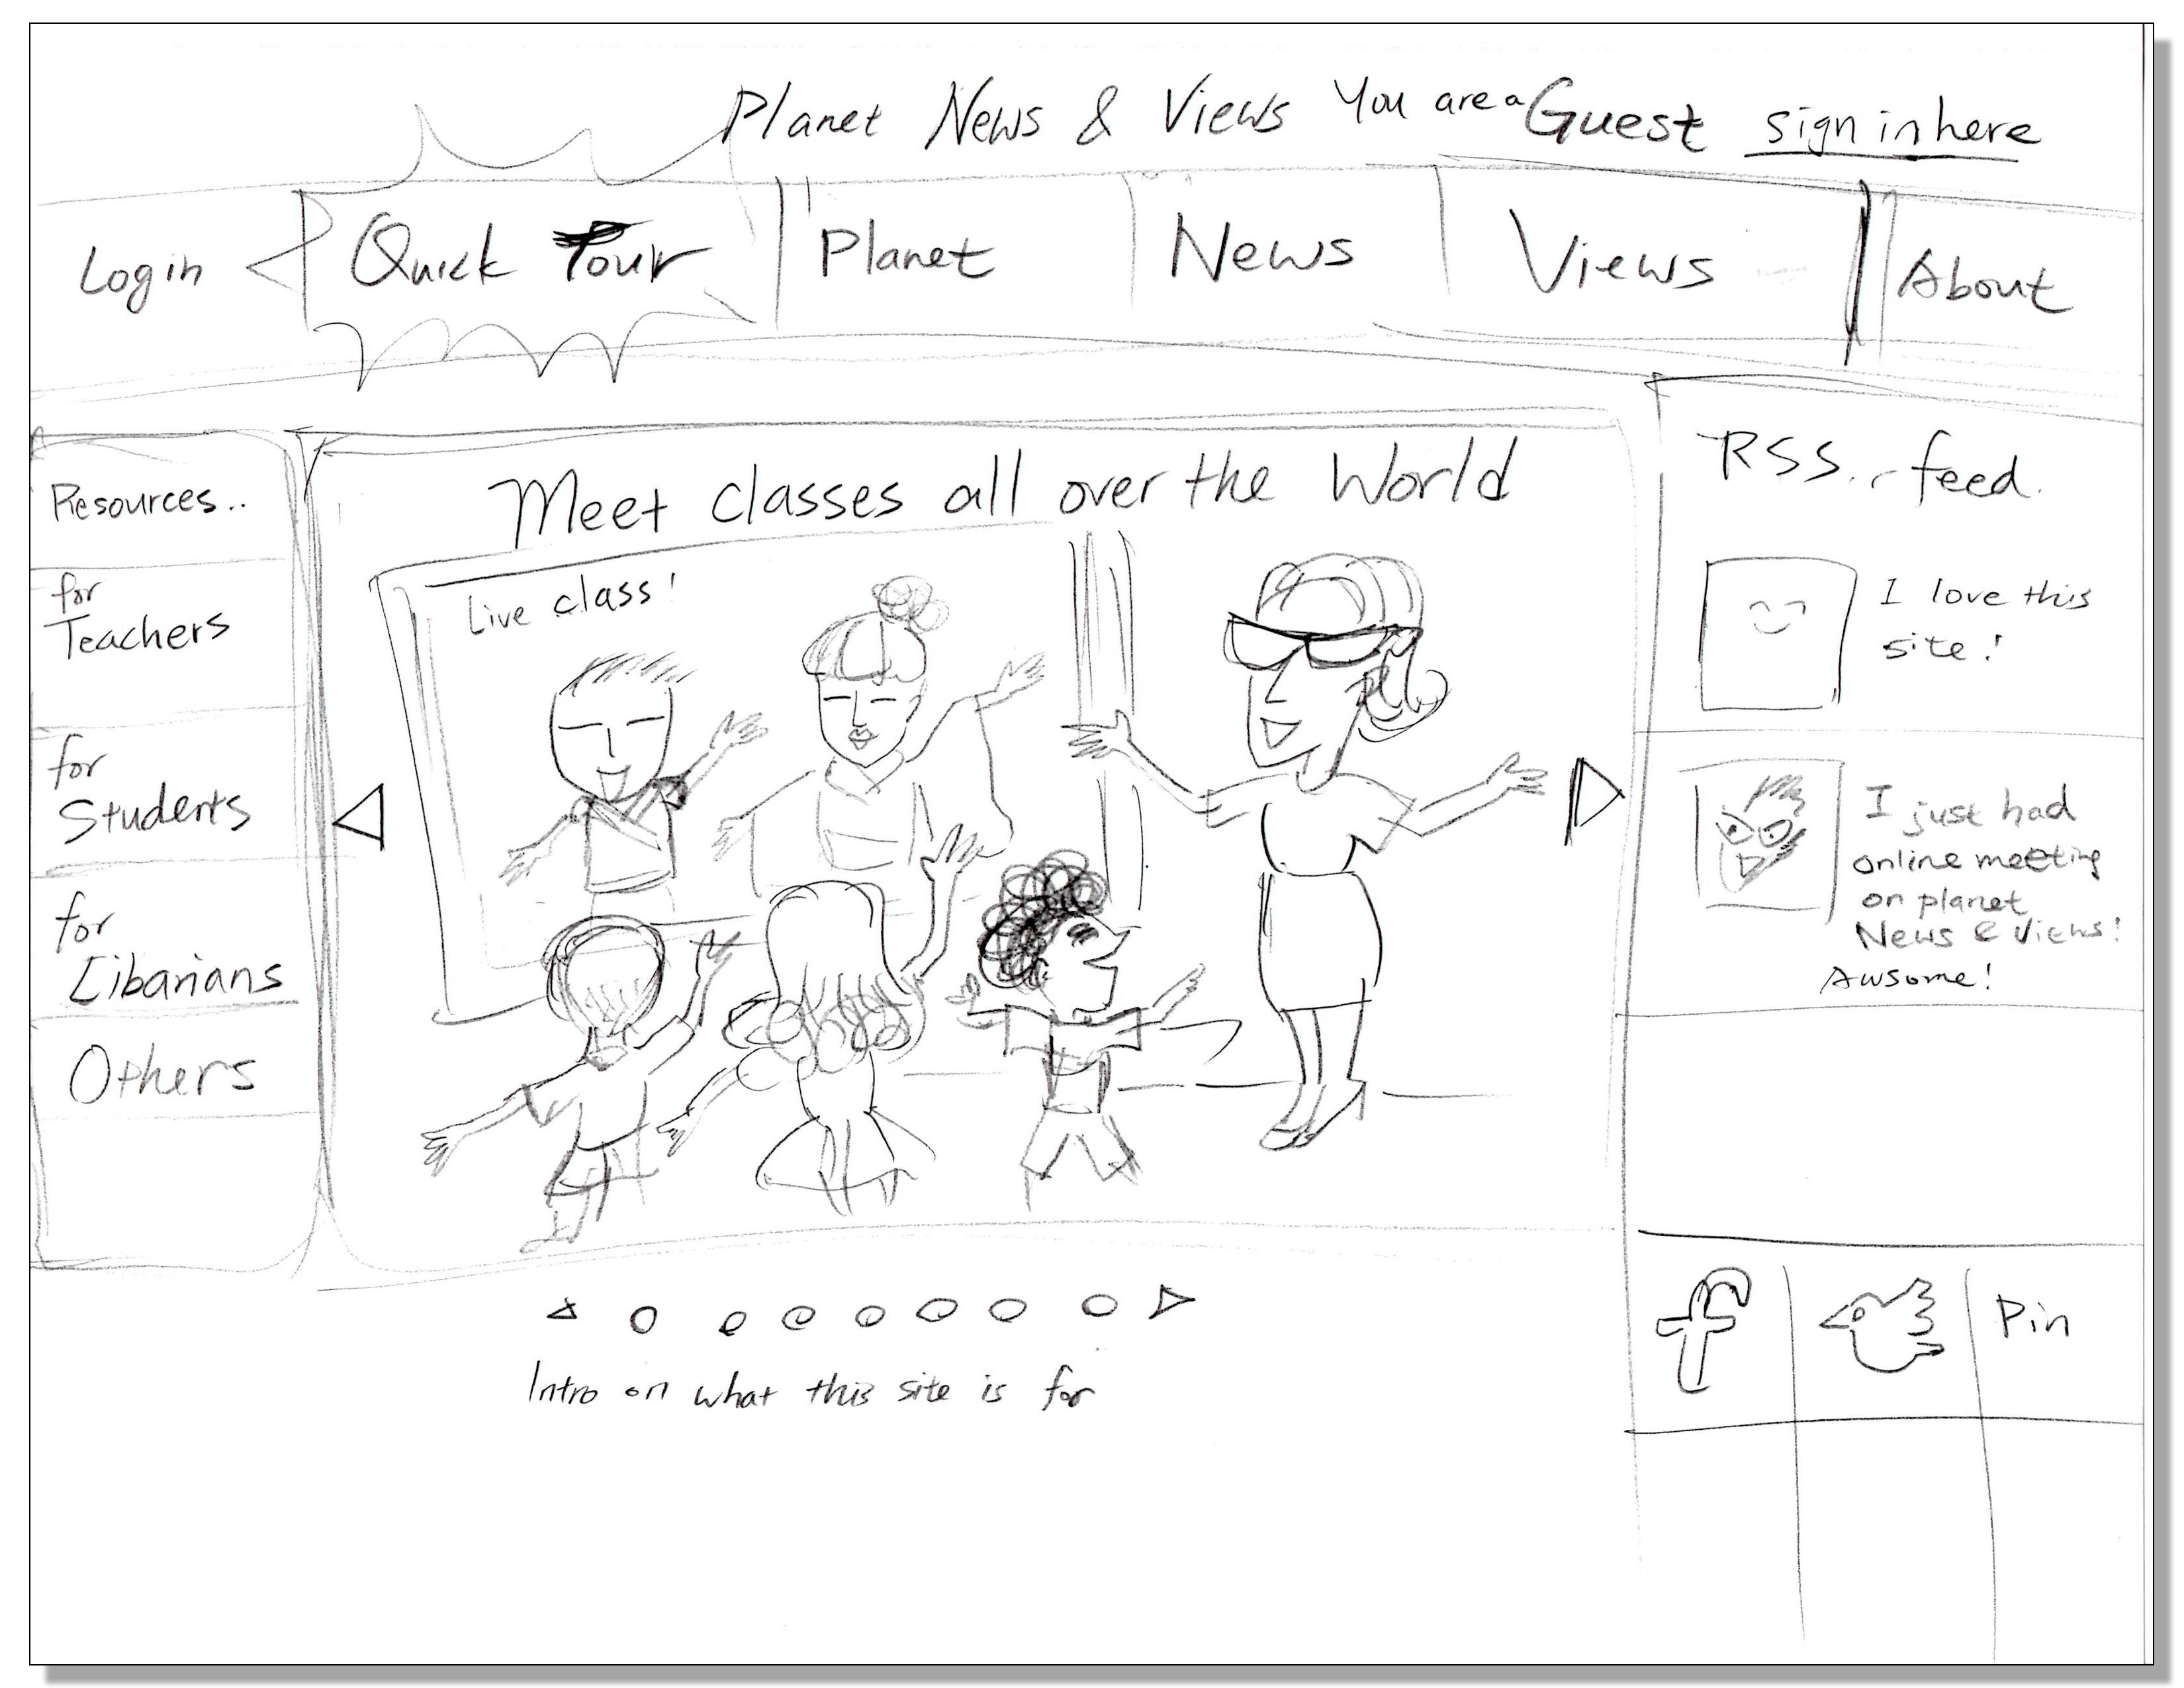 Planet News & Views You are a Guest sign in here
Login
Quick Tour
Planet
News
Views
About
Resources..
for
Teachers
for
Students
for
Libarians
Others
Meet classes all over the World
Live class!
RSS... feed.
I love this
site!
I just had
online meeting
on planet
News & Views!
Awsome!
Pin
Intro on what this site is for